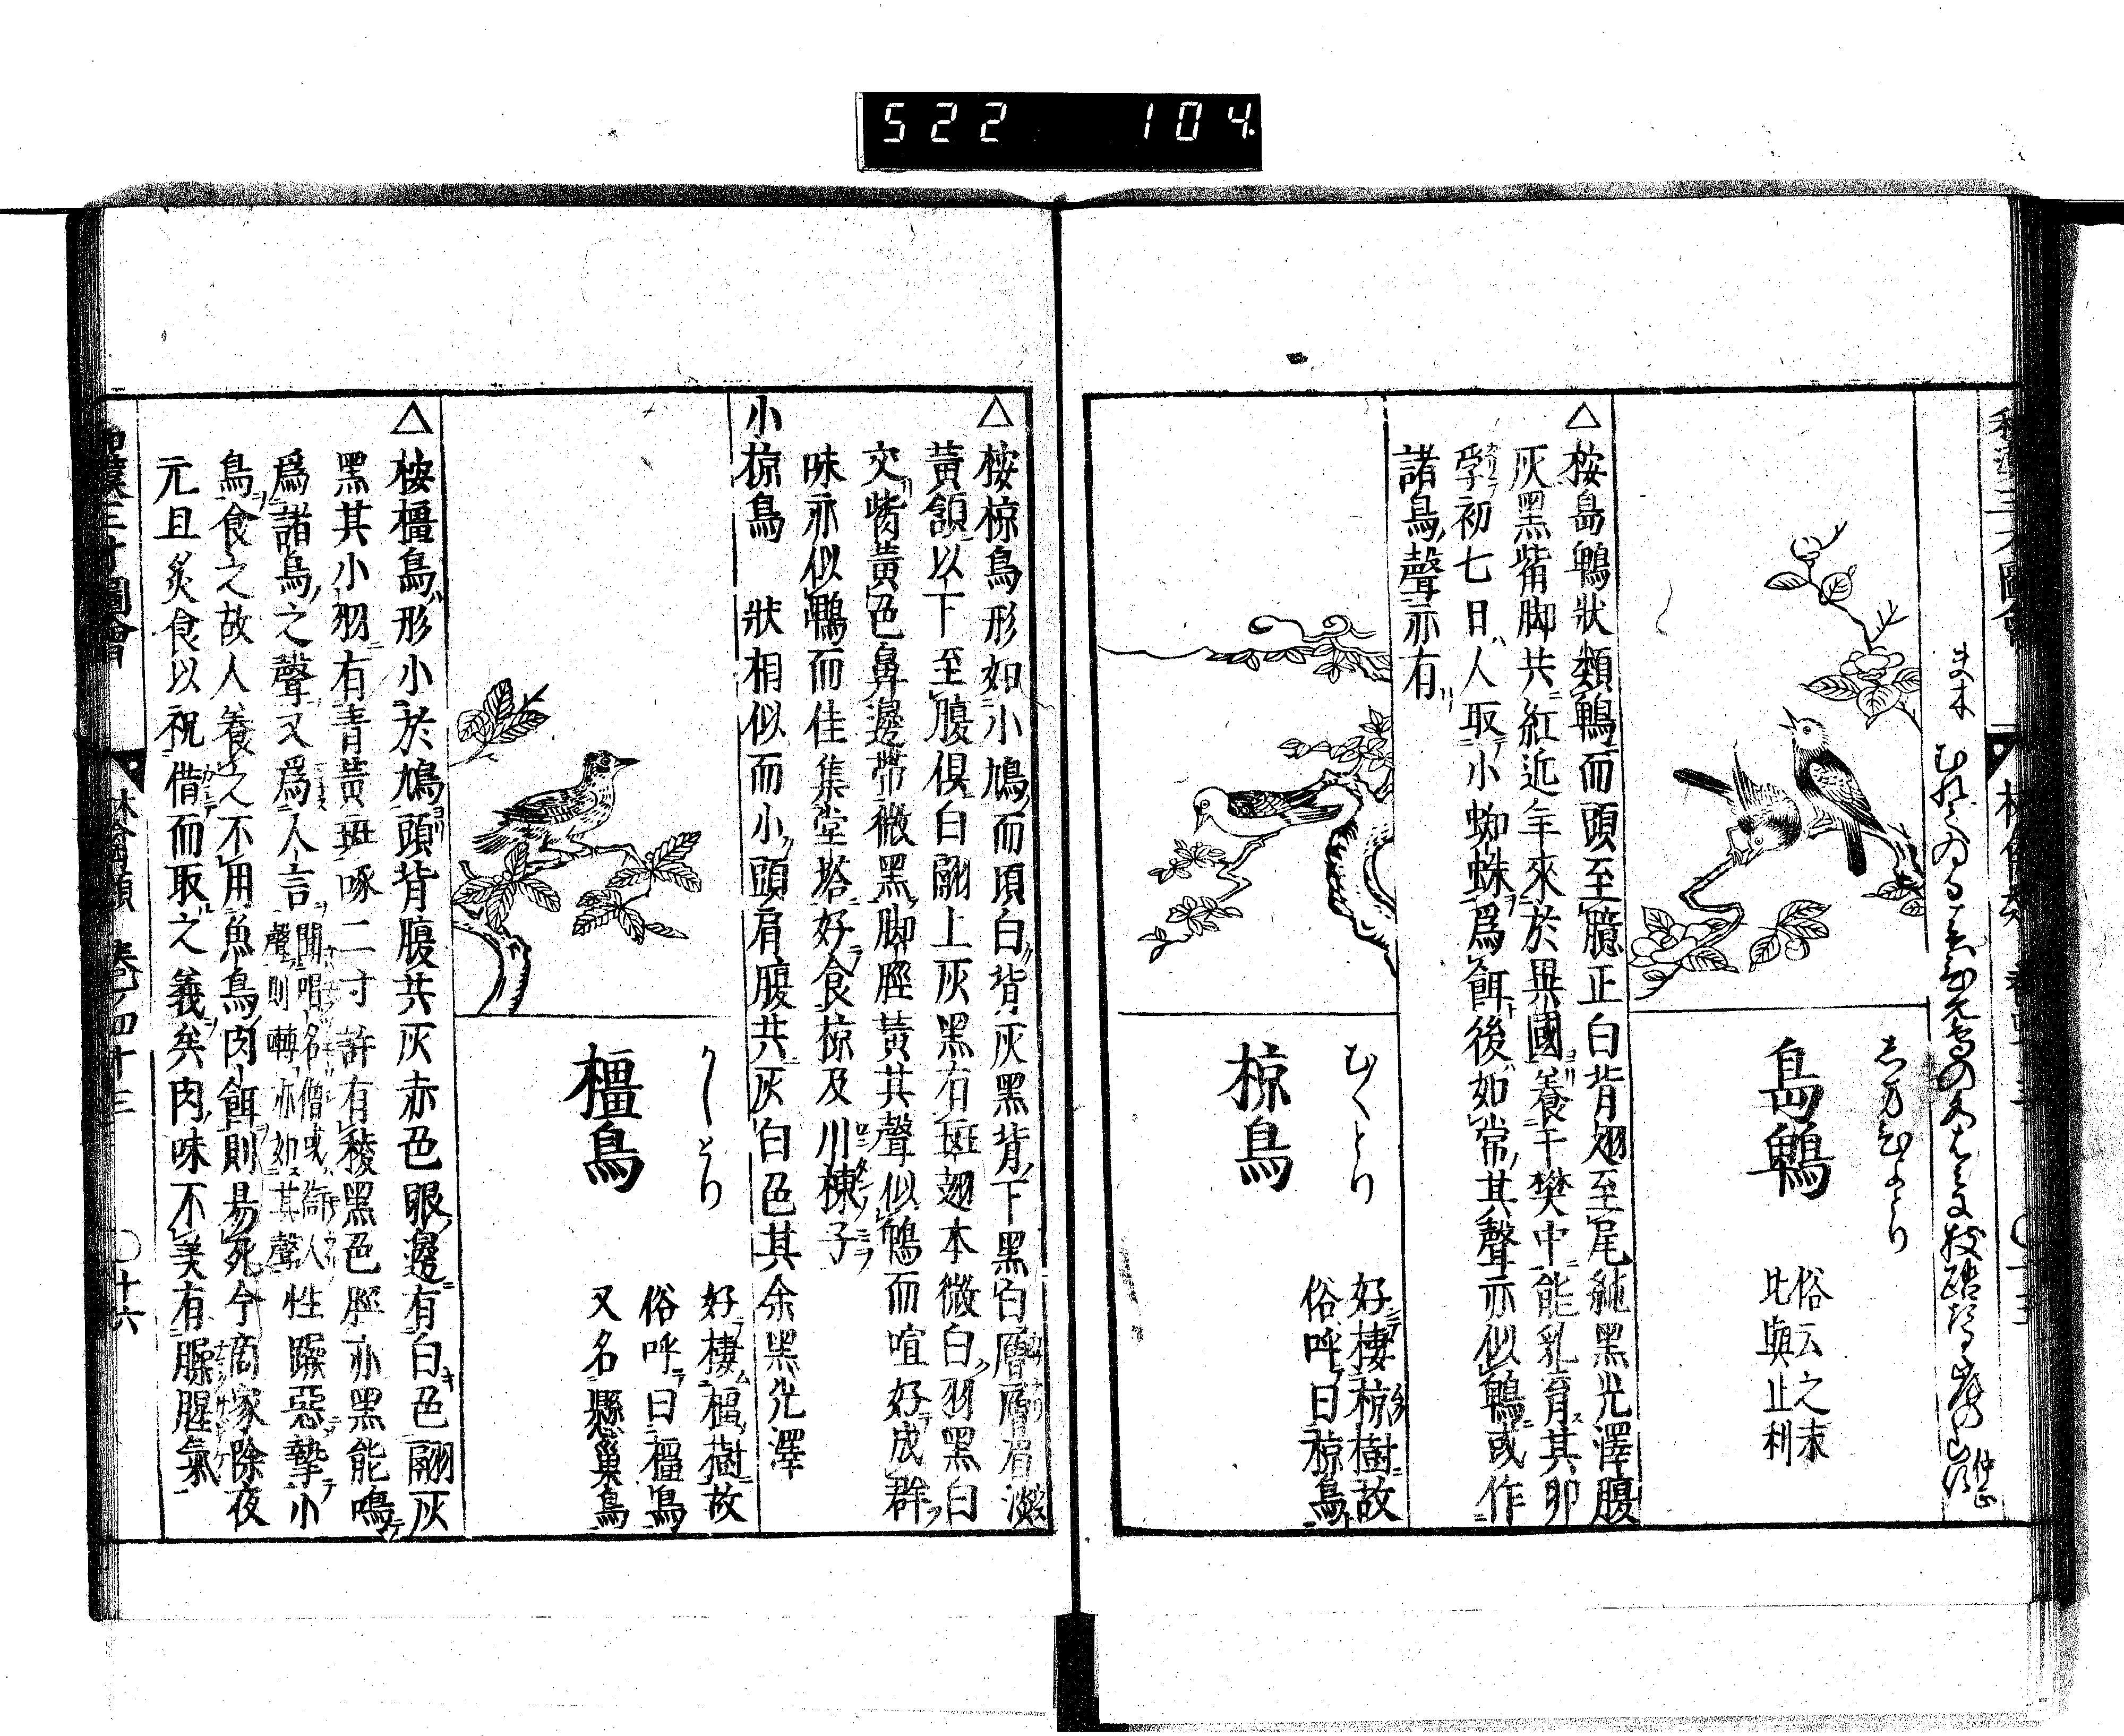 522 104
夫木
仲正
しまひよとり
島鵯
俗云之末
比與止利
△按島鵯狀類鵯而頭至臆正白背翅至尾純黑光澤腹
灰黑觜脚共紅近年來於異國養于樊中能乳育其卵
孚初七日人取小蜘蛛爲餌後如常其聲亦似鵯或作
諸鳥聲亦有
むくとり
椋鳥
好棲椋樹故
俗呼曰椋鳥
△按椋鳥形如小鳩而項白背灰黑背下黑白層層眉淡
黃頷以下至腹俱白翮上灰黑有斑翅本微白羽黑白
交觜黃色鼻邊帶微黑脚脛黃其聲似鵯而喧好成群
味亦似鴨而佳集堂塔好食椋及川楝子
小椋鳥 狀相似而小頭肩腹共灰白色其余黑光澤
かしとり
橿鳥
好棲橿樹故
俗呼曰橿鳥
又名懸巢鳥
△按橿鳥形小於鳩頭背腹共灰赤色眼邊有白色翮灰
黑其小羽有青黃斑啄二寸許有稜黑色脛亦黑能鳴
爲諸鳥之聲又爲人言聞唱名僧或衒人聲則囀亦如其聲性躁惡摯小
鳥食之故人養之不用魚鳥肉餌則易死今商家除夜
元旦炙食以祝借而取之義矣肉味不美有臊腥氣
和漢三才圖會 林禽類 卷ノ四十三 〇十六